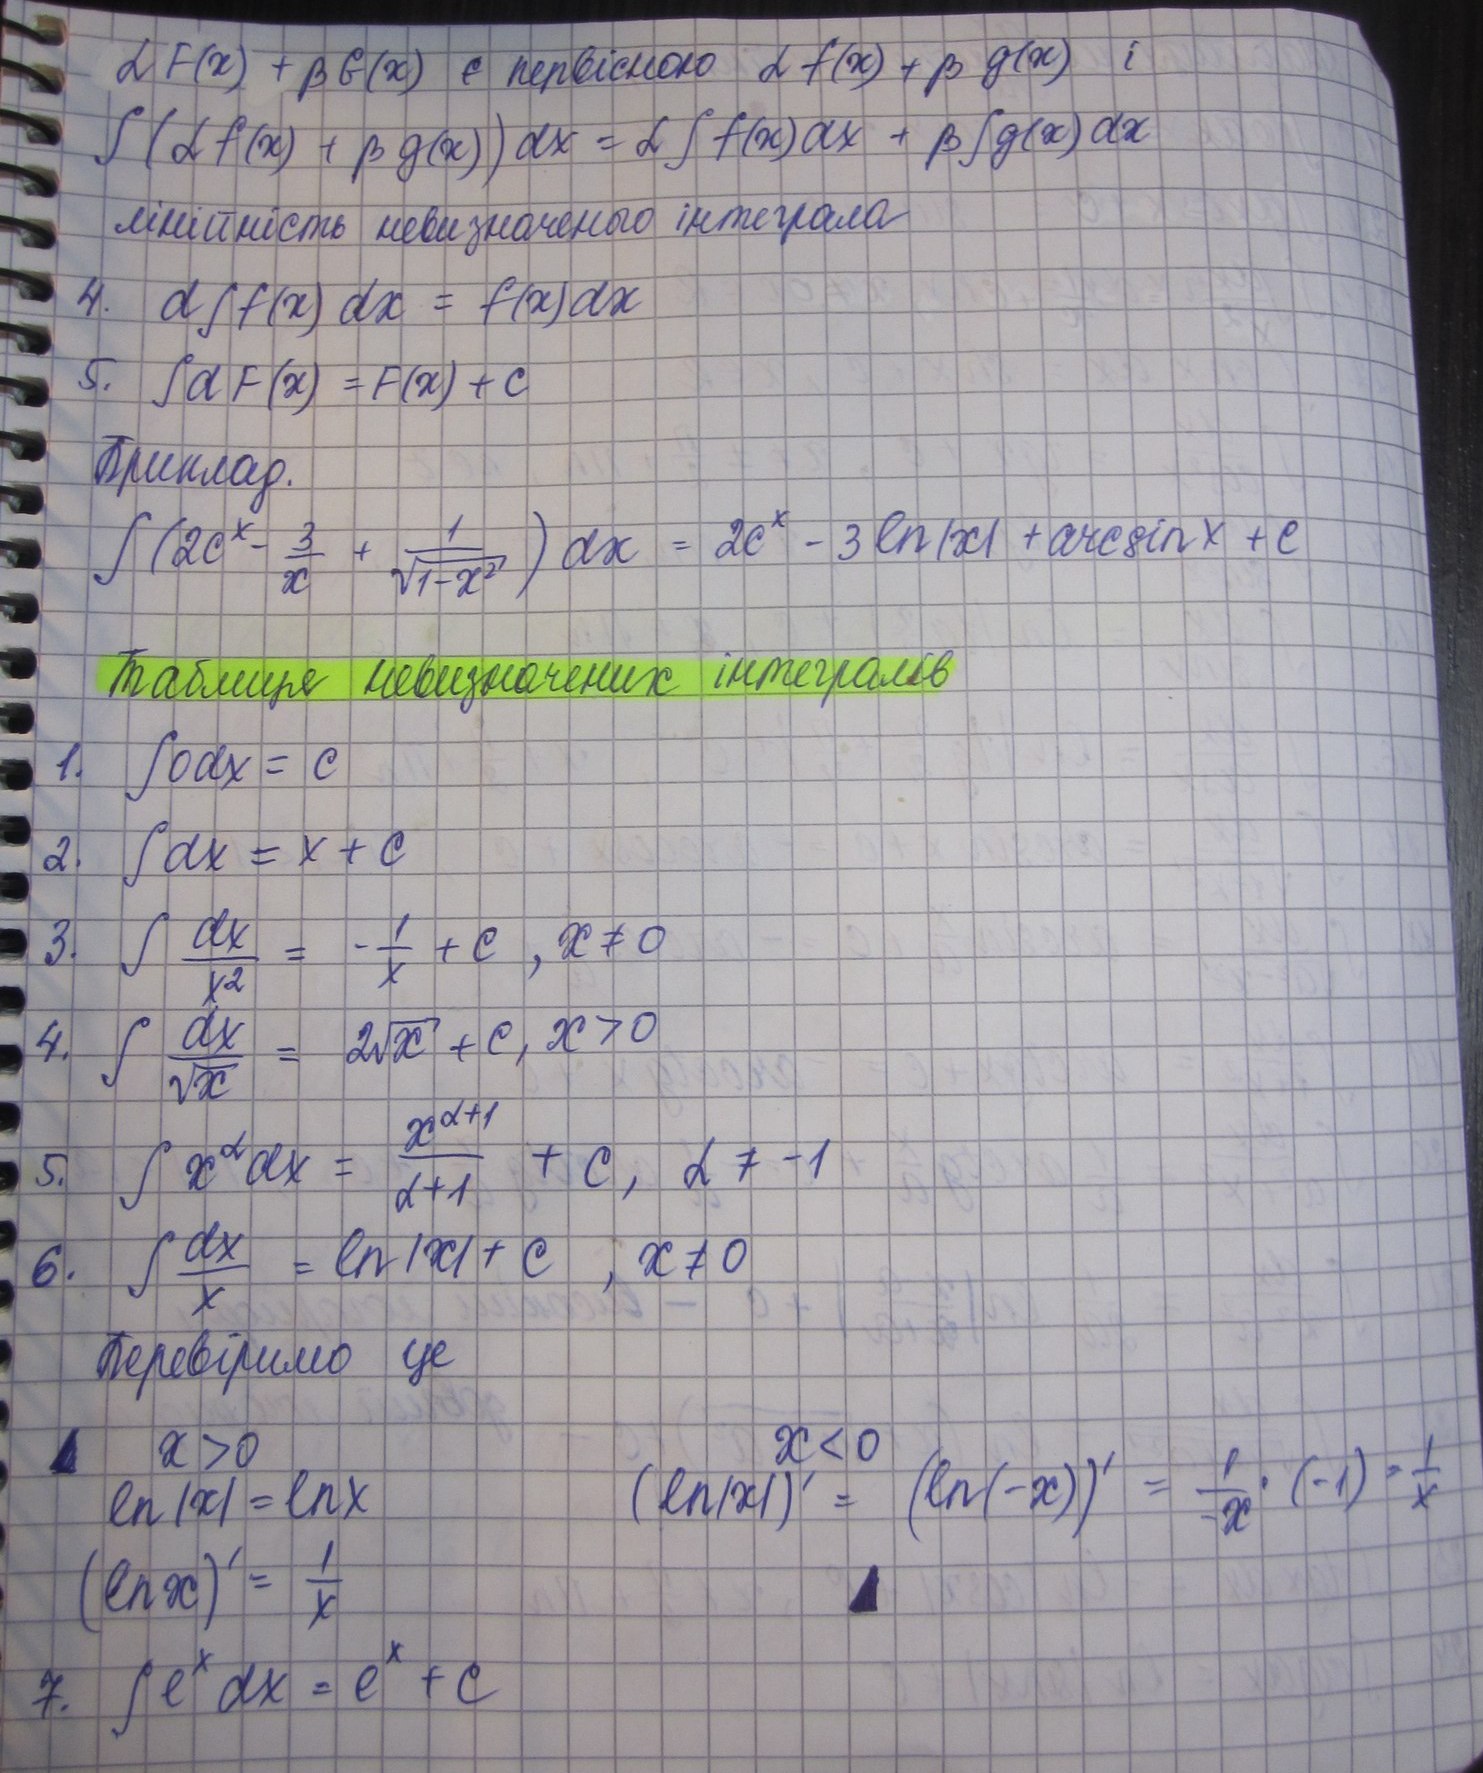 αF(x) + βG(x) є первісною αf(x) + βg(x) і
∫(αf(x) + βg(x))dx = α∫f(x)dx + β∫g(x)dx
лінійність невизначеного інтеграла
4. d∫f(x)dx = f(x)dx
5. ∫dF(x) = F(x) + c
Приклад.
∫(2e^x - 3/x + 1/√(1-x²))dx = 2e^x - 3ln|x| + arcsin x + c
Таблиця невизначених інтегралів
1. ∫0dx = c
2. ∫dx = x + c
3. ∫dx/x² = -1/x + c, x ≠ 0
4. ∫dx/√x = 2√x + c, x > 0
5. ∫x^α dx = x^(α+1)/(α+1) + c, α ≠ -1
6. ∫dx/x = ln|x| + c, x ≠ 0
Перевіримо це
x > 0 x < 0
ln|x| = ln x (ln|x|)' = (ln(-x))' = 1/-x · (-1) = 1/x
(ln x)' = 1/x
7. ∫e^x dx = e^x + c